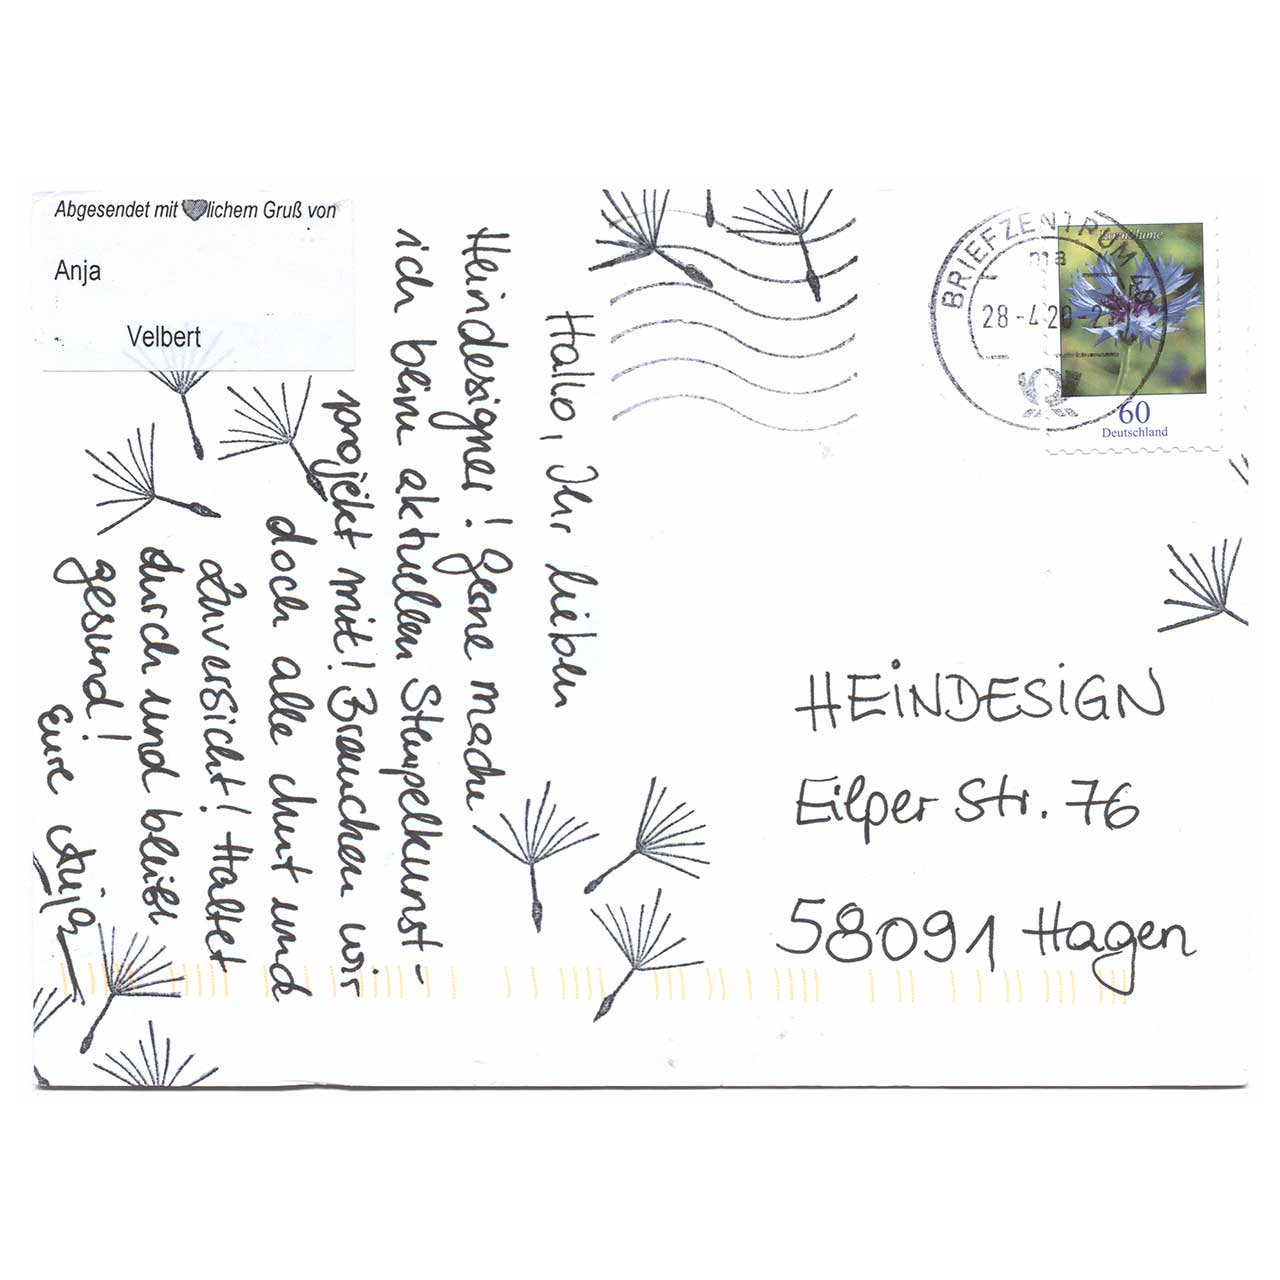 Abgesendet mit ♥lichem Gruß von
Anja
Velbert
Hallo, Ihr lieben
Heindesigner! Gerne mache
ich beim aktuellen Stempelkunst-
projekt mit! Brauchen wir
doch alle Mut und
Zuversicht! Haltet
durch und bleibt
gesund!
Eure Anja
BRIEFZENTRUM
28-4.20-2
Kornblume
60
Deutschland
HEINDESIGN
Eilper Str. 76
58091 Hagen